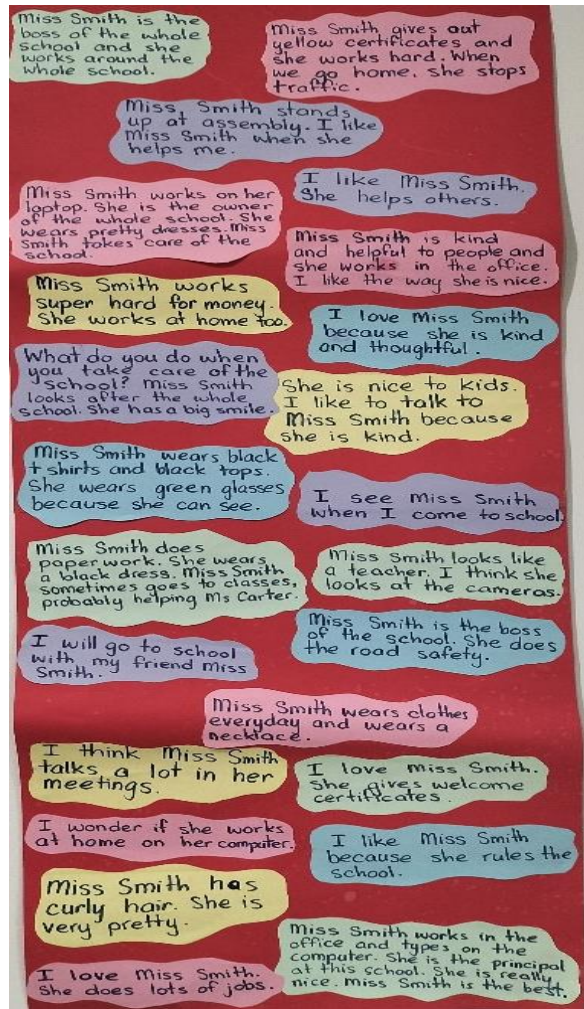 Miss Smith is the
boss of the whole
school and she
works around the
whole school.
Miss Smith gives out
yellow certificates and
she works hard. When
we go home, she stops
traffic.
Miss, Smith stands
up at assembly. I like
Miss Smith when she
helps me.
I like Miss Smith.
She helps others.
Miss Smith works on her
laptop. She is the owner
of the whole school. She
wears pretty dresses. Miss
Smith takes care of the
school.
Miss Smith is kind
and helpful to people and
she works in the office.
I like the way she is nice.
Miss Smith works
super hard for money.
She works at home too.
I love Miss Smith
because she is kind
and thoughtful.
What do you do when
you take care of the
school? Miss Smith
looks after the whole
school. She has a big smile.
She is nice to kids.
I like to talk to
Miss Smith because
she is kind.
Miss Smith wears black
t shirts and black tops.
She wears green glasses
because she can see.
I see Miss Smith
when I come to school
Miss Smith does
paper work. She wears
a black dress. Miss Smith
sometimes goes to classes,
probably helping Ms Carter.
Miss Smith looks like
a teacher. I think she
looks at the cameras.
Miss Smith is the boss
of the school. She does
the road safety.
I will go to school
with my friend Miss
Smith.
Miss Smith wears clothes
everyday and wears a
necklace.
I think Miss Smith
talks a lot in her
meetings.
I love Miss Smith.
She gives welcome
certificates.
I wonder if she works
at home on her computer.
I like Miss Smith
because she rules the
school.
Miss Smith has
curly hair. She is
very pretty.
Miss Smith works in the
office and types on the
computer. She is the principal
at this school. She is really
nice. Miss Smith is the best.
I love Miss Smith.
She does lots of jobs.